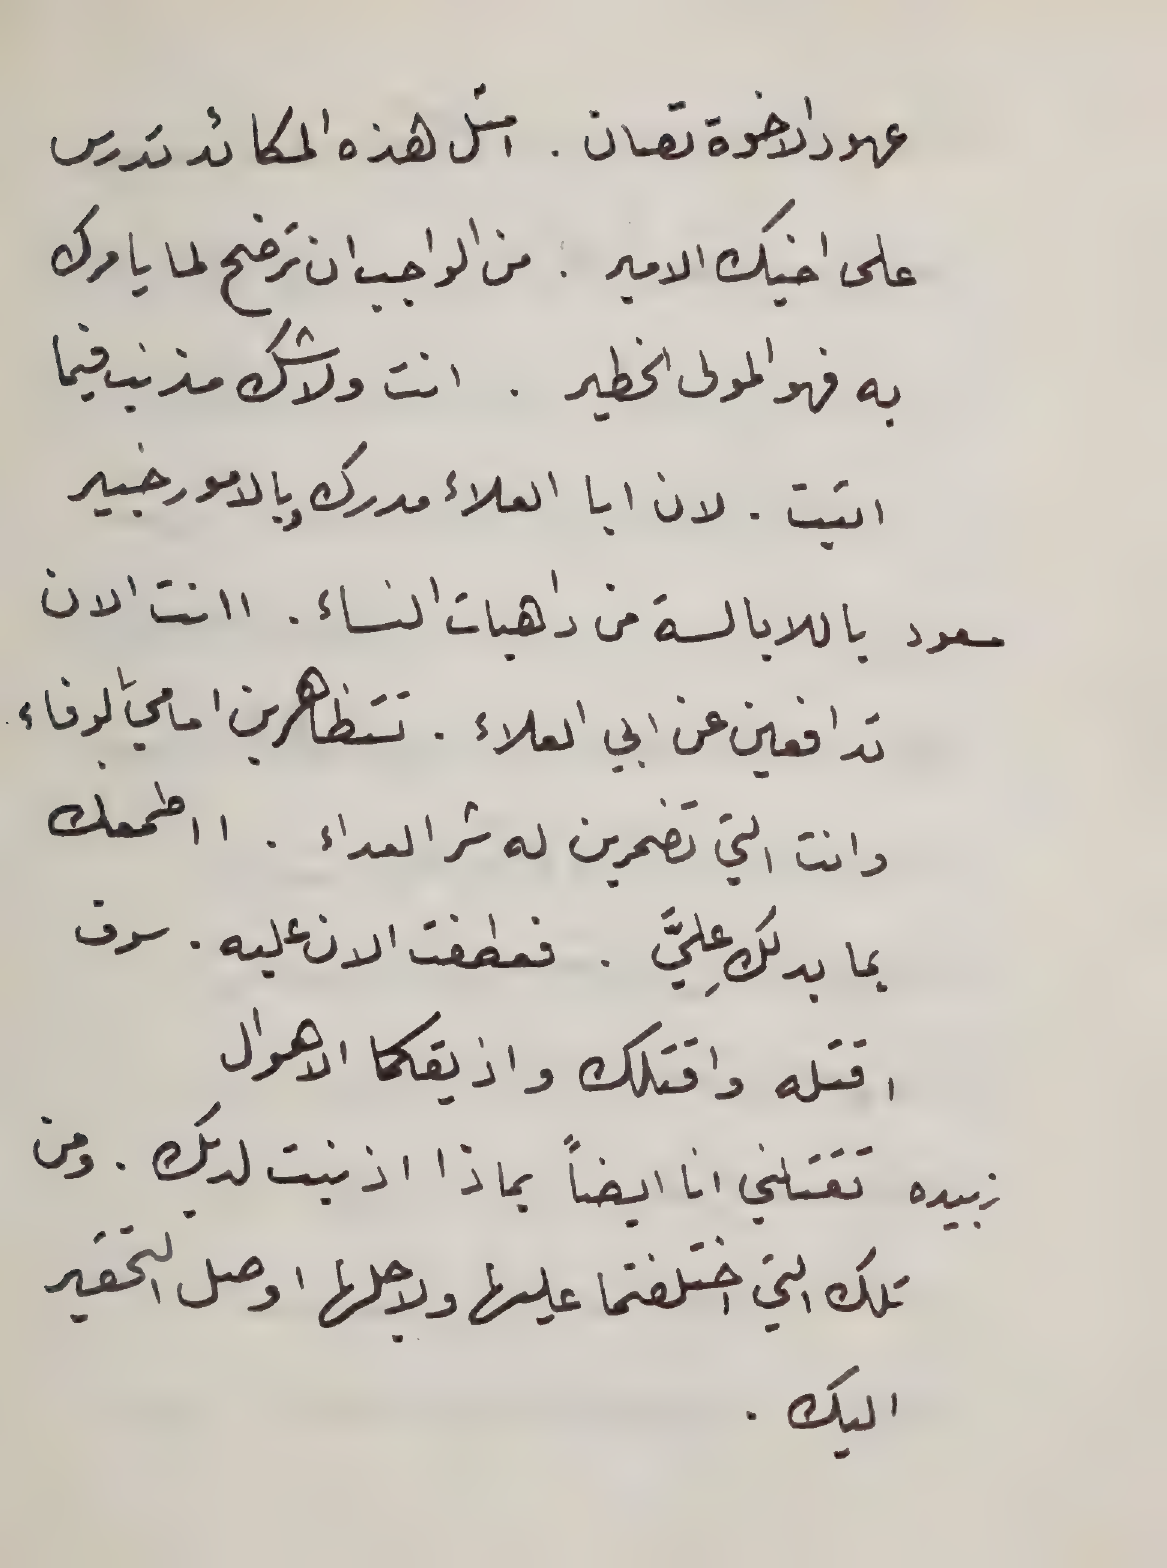 عهود الاخوة تصان . امثل هذه المكائد تدرس
على اخيك الامير . من الواجب ان ترضح لما يامرك
به فهو المولى الخطير . انت ولا شك مذنب فيما
اتيت . لان ابا العلاء مدرك بالامور خبير
مسعود ياللابالسة من داهيات النساء . اانت الان
تدافعين عن ابي العلاء . تتظاهرين امامي بالوفاء .
وانت التي تضمرين له شر العداء . ااطمعك
بما يدلك عِليَّ . فعطفت الان عليه . سوف
اقتله واقتلك واذيقكما الاهوال
زبيده تقتلني انا ايضاً بماذا اذنبت لديك . ومن
تلك التي اختلفتما عليها ولاجلها اوصل التحقير
اليك .